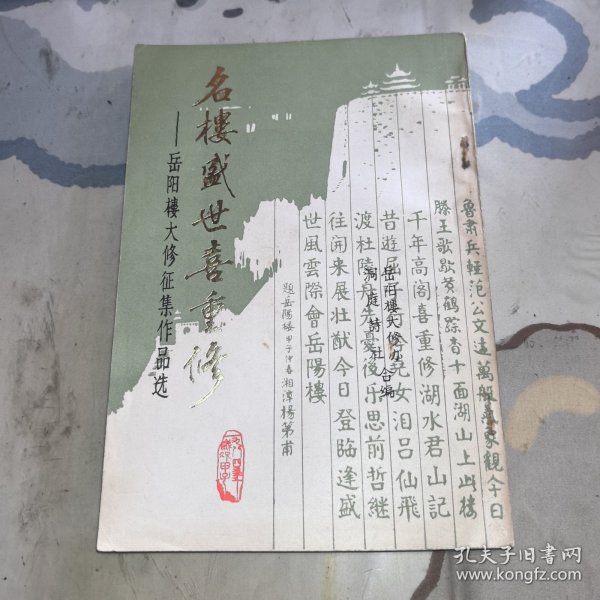 名樓盛世喜重修
——岳阳樓大修征集作品选
魯肅兵輕范公文遠萬般景象觀今日
滕王歌歇黄鶴踪杳十面湖山上此樓
千年高阁喜重修湖水君山記
昔遊屈兒女泪吕仙飛
渡杜陵舟先憂後乐思前哲继
往開来展壮猷今日登临逢盛
世風雲際會岳陽樓
題岳陽楼 甲子仲春湘潭楊第甫
岳阳樓大修办
洞庭詩社
合編
孔夫子旧书网
www.kongfz.com